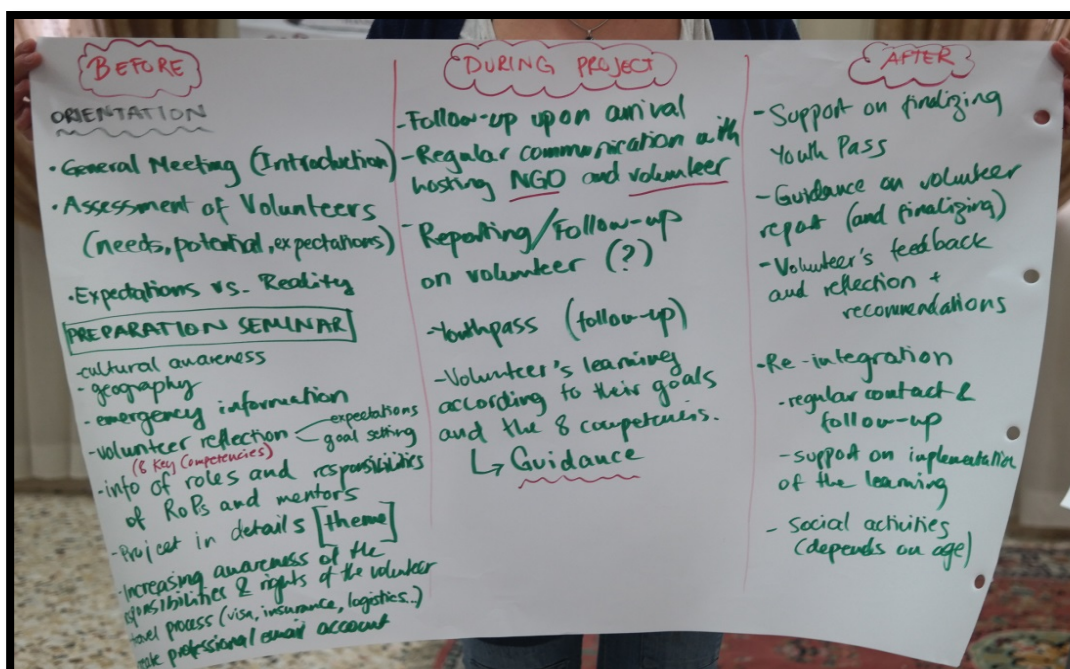 BEFORE
ORIENTATION
• General Meeting (Introduction)
• Assessment of Volunteers
(needs, potential, expectations)
• Expectations vs. Reality
PREPARATION SEMINAR
- cultural awareness
- geography
- emergency information
- volunteer reflection < expectations
goal setting
(8 Key Competencies)
- info of roles and responsibilities
of RoPs and mentors
- Project in details [theme]
- Increasing awareness of the
responsibilities & rights of the volunteer
travel process (visa, insurance, logistics..)
professional email account
DURING PROJECT
- Follow-up upon arrival
- Regular communication with
hosting NGO and volunteer
- Reporting/Follow-up
on volunteer (?)
- Youthpass (follow-up)
- Volunteer's learning
according to their goals
and the 8 competencies.
↳ Guidance
AFTER
- Support on finalizing
Youth Pass
- Guidance on volunteer
report (and finalizing)
- Volunteer's feedback
and reflection +
recommendations
- Re-integration
- regular contact &
follow-up
- support on implementation
of the learning
- Social activities
(depends on age)